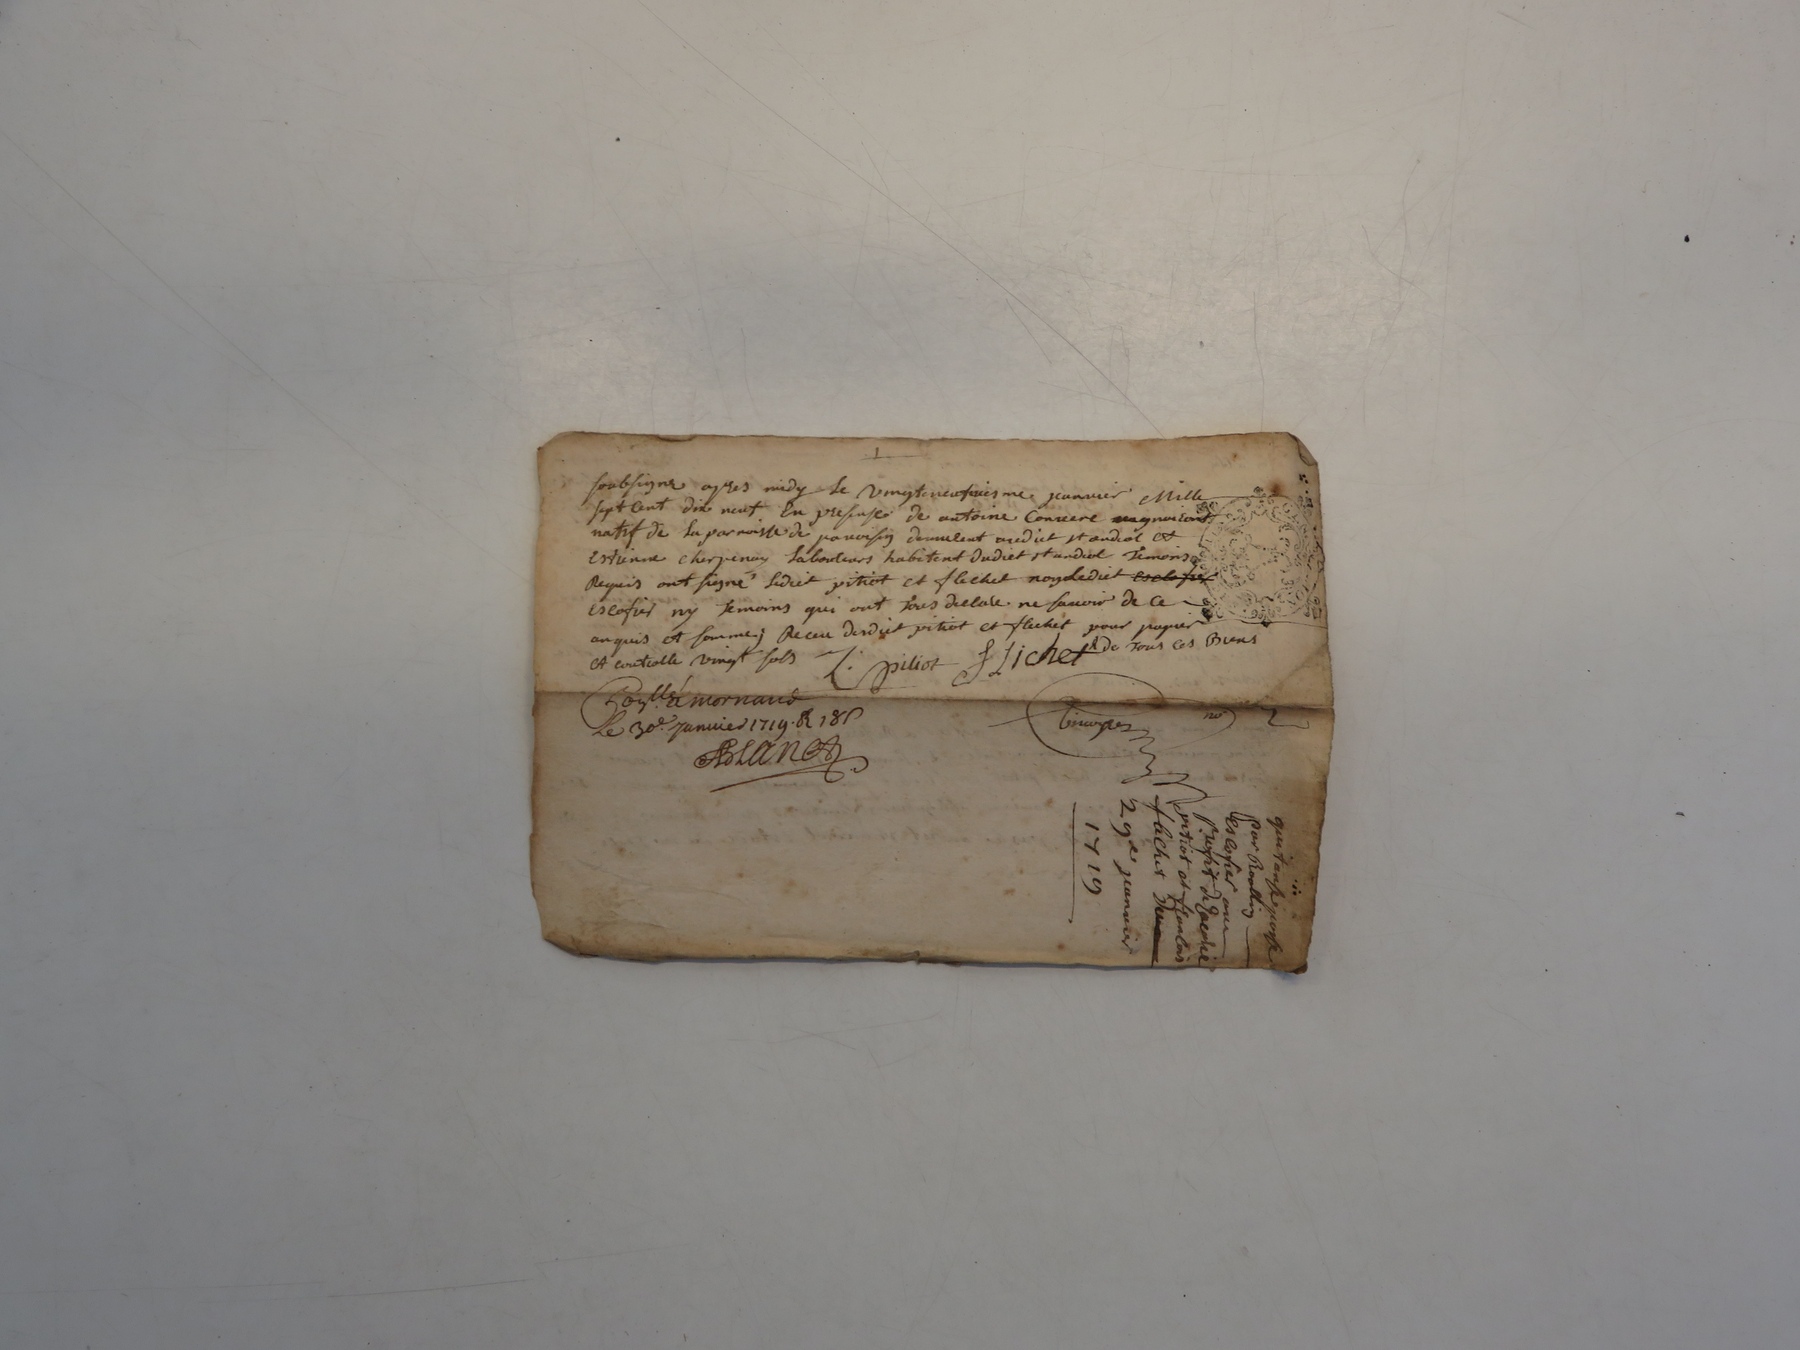 soubsigne apres midy le vingtneufuiesme jeanvier Mille
sept cent dix neuf En presense de antoine
natif de la parroisse de demeurant audict st andeol et
Estienne cherpenay laboureurs habitent dudict st andeol Temoins
Requis ont signé ledict pitiot et flechet non ledict
escofier ny Temoins qui ont Tous declare ne savoir de ce
anquis et sommej Receu desdict pitiot et flechet pour papier
et controlle vingt sols pitiot flichet de tous ces Biens
Con.llé a mornand
Le 30e Janvier 1719. R 18s
BLANC
no.re
quitanse
par
escofier au
proffit de
pitiot et francois
flechet
29e jeanvier
1719